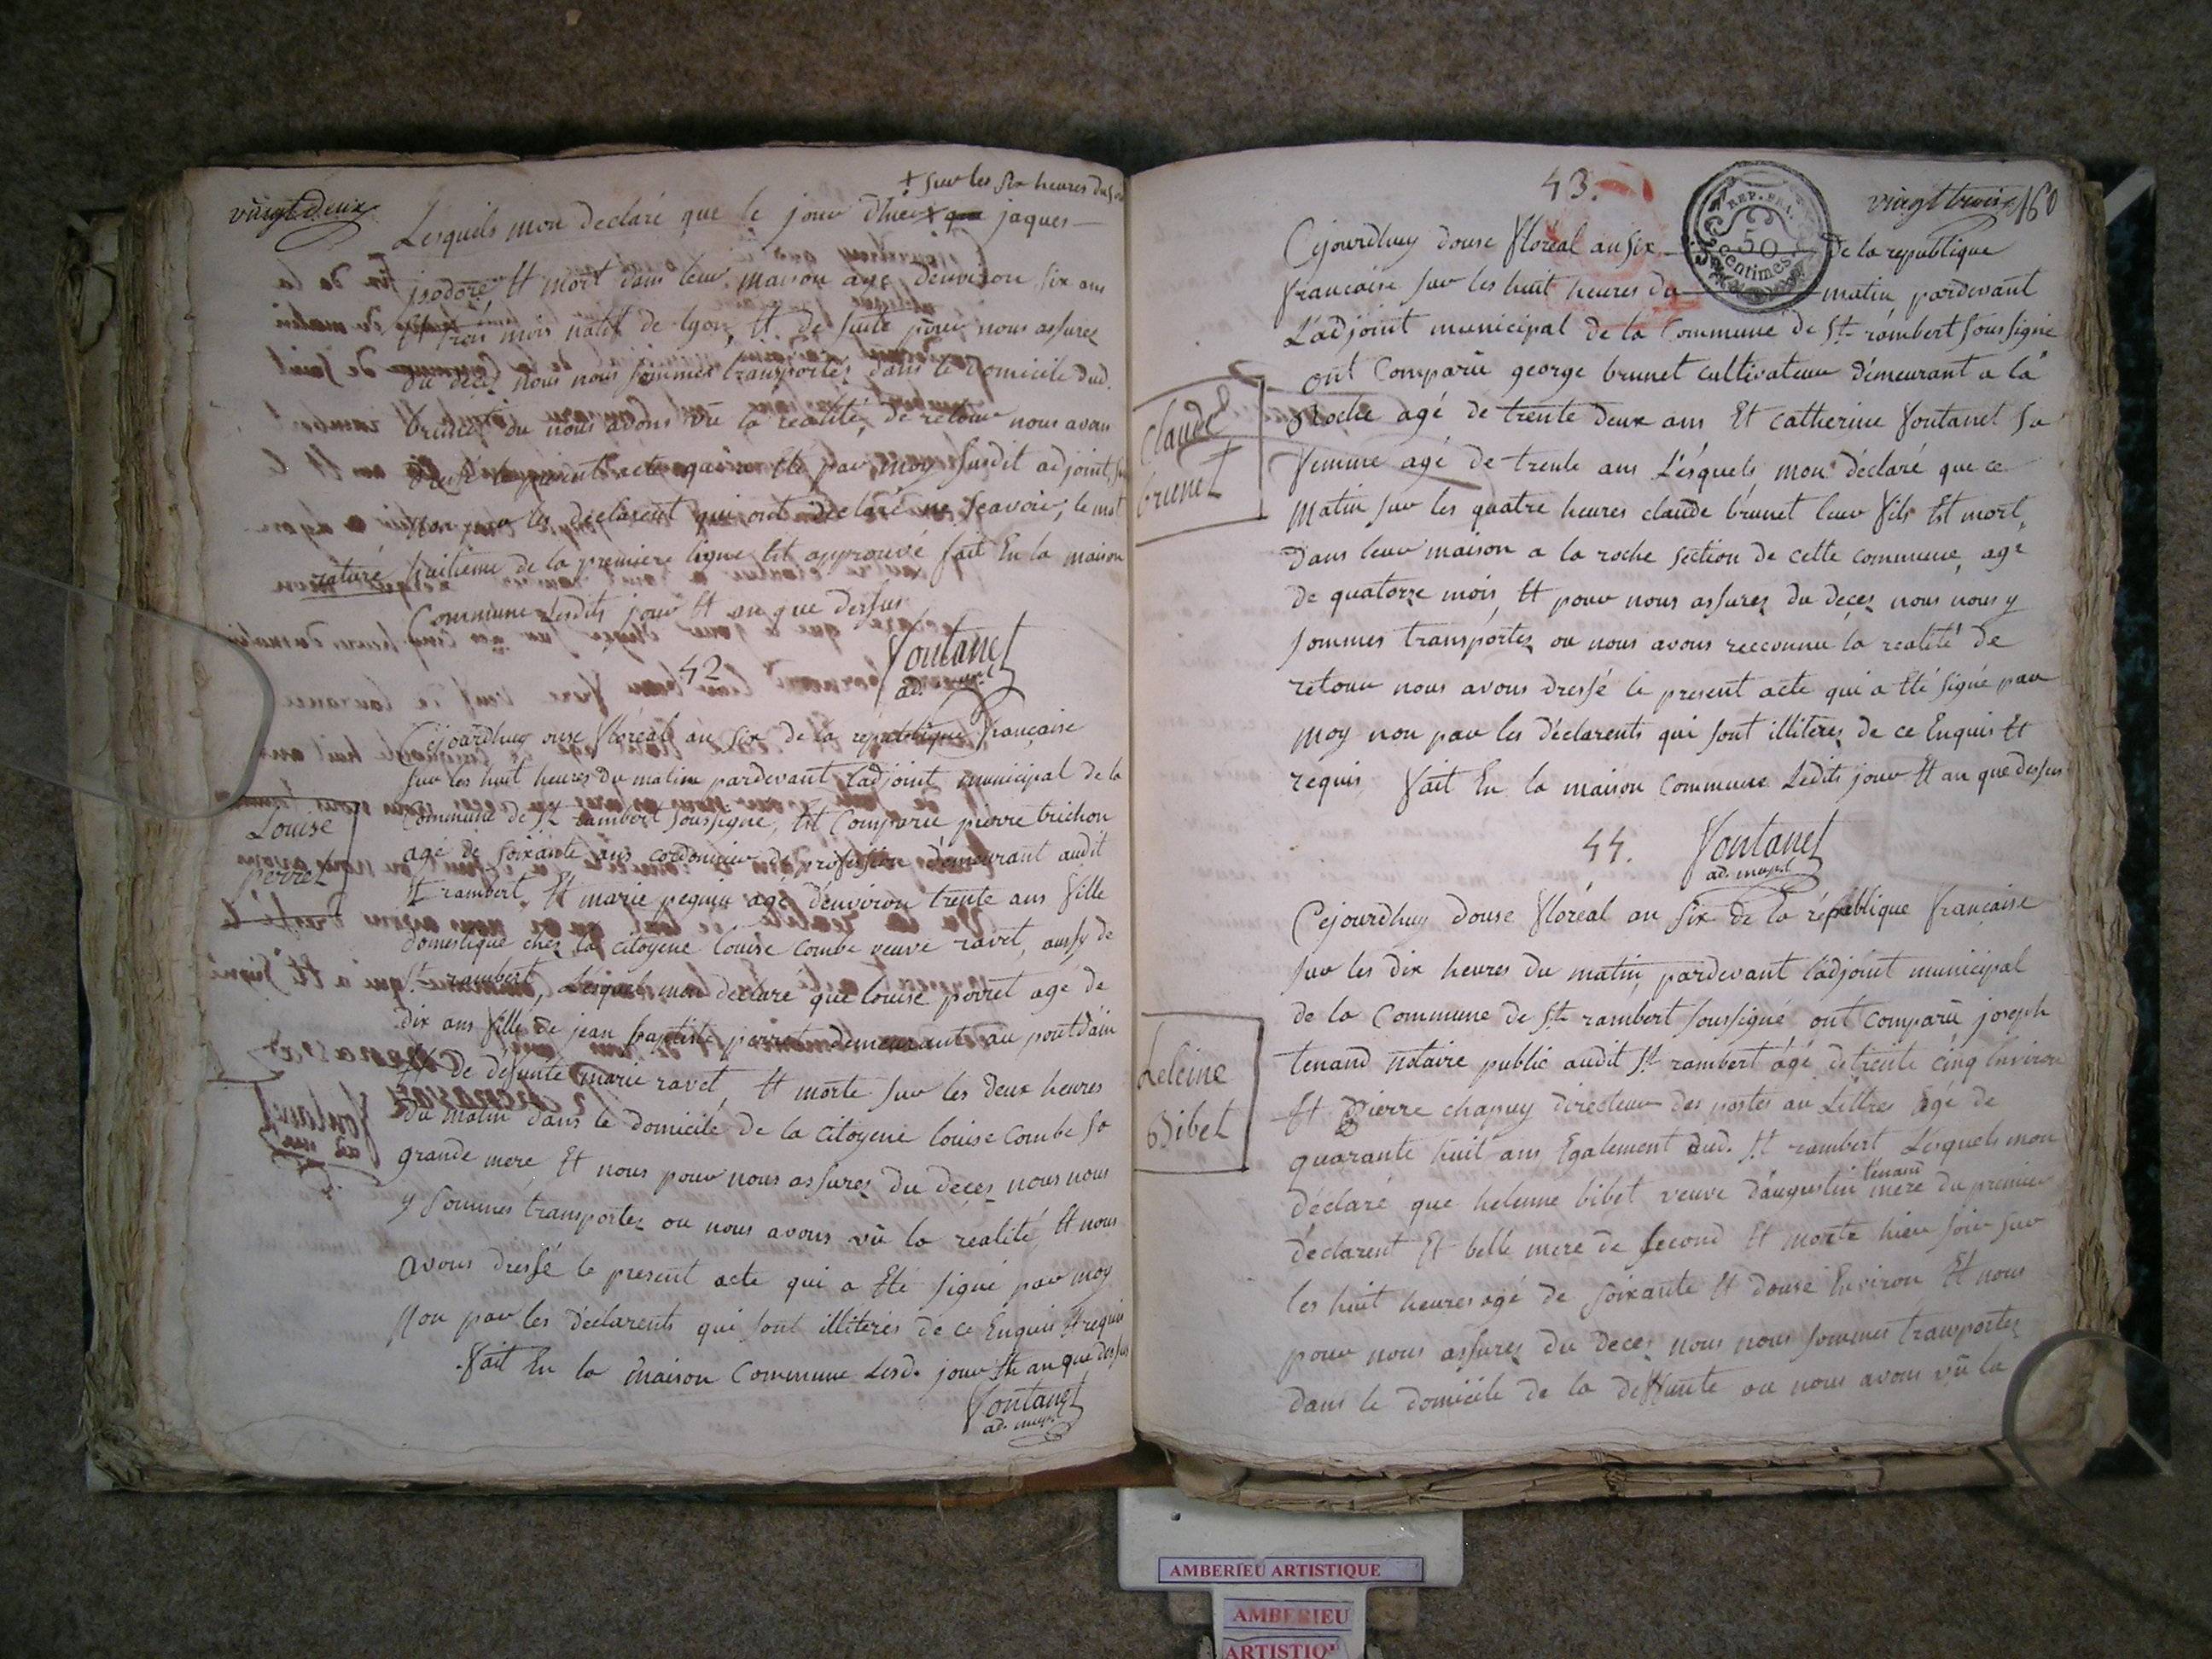 vingt deux
+ sur les six heures du soir
Lesquels mon declaré que le jour dhier + que jaques
isodore Et mort dans leur maison agé denviron six ans
Et trois mois natif de lyon, Et de suite pour nous assurez
du décez nous nous sommes transportéz dans le domicile dud.
brunet ou nous avons vû la realité, de retour nous avons
dressé le present acte qui a Eté par moy susdit adjoint,
non par les déclarent qui ont déclaré ne scavoir, le mot
raturé huitieme de la premiere ligne Et approuvé fait En la maison
Commune Lesdits jour Et an que dessus
Fontanet
ad. mupal
42
Louise
perret
Cejourdhuy onse floréal an six de la république francaise
sur les huit heures du matin pardevant Ladjoint municipal de la
Commune de St rambert soussigné, Est Comparû pierre trichon
agé de soixante ans cordonnier de profession demeurant audit
St rambert, Et marie peguin agé d'environ trente ans fille
domestique chez la citoyene louise combe veuve ravet, aussy de
St rambert, Lesquel mon declaré que louise perret agé de
dix ans fille de jean baptiste perret demeurant au pontdain
Et de defunte marie ravet, Et morte sur les deux heures
du matin dans le domicile de la citoyene louise combe sa
grande mere, Et nous pour nous assurez du decez nous nous
y sommes transportez ou nous avons vû la realité, Et nous
avons dressé le present acte qui a Eté signé par moy
non par les déclarents qui sont illitéres de ce Enquis Et requis
fait En la maison Commune Lesd. jour Et an que dessus
Fontanet
ad. mupal
43.
REP. FRA.
50
centimes
vingt trois
160
Cejourdhuy douse floréal an six de la republique
francaise sur les huit heures du matin pardevant
L'adjoint municipal de la Commune de St rambert soussigné
ont Comparû george brunet cultivateur démeurant a la
Roche agé de trente deux ans Et catherine fontanet sa
femme agé de trente ans Lésquels mon déclaré que ce
matin sur les quatre heures claude brunet leur fils Est mort
dans leur maison a la roche section de cette commune, agé
de quatorze mois, Et pour nous assurez du decez nous nous y
sommes transportez ou nous avons recconnu la realité de
retour nous avons dressé le present acte qui a Eté signé par
moy non par les déclarents qui sont illitérez de ce Enquis Et
requis fait En la maison Commune Ledits jour Et an que dessus
Claude
brunet
Fontanet
ad. mupal
44.
Cejourdhuy douse floréal an six de la république francaise
sur les dix heures du matin, pardevant l'adjoint municipal
de la Commune de St rambert soussigné ont comparû joseph
tenand notaire public audit St rambert agé de trente cinq Environ
Et Pierre chapuy directeur des postes au Lettres agé de
quarante huit ans Egalement dud. St rambert Lesquels mon
déclaré que helenne bibet veuve d'augustin tenand mere du premier
déclarent Et belle mere de second Et morte hier soir sur
les huit heures agé de soixante Et douse Environ Et nous
pour nous assurez du decez nous nous sommes transportez
dans le domicile de la deffunte ou nous avons vû la
Bibet
AMBERIEU ARTISTIQUE
AMBERIEU